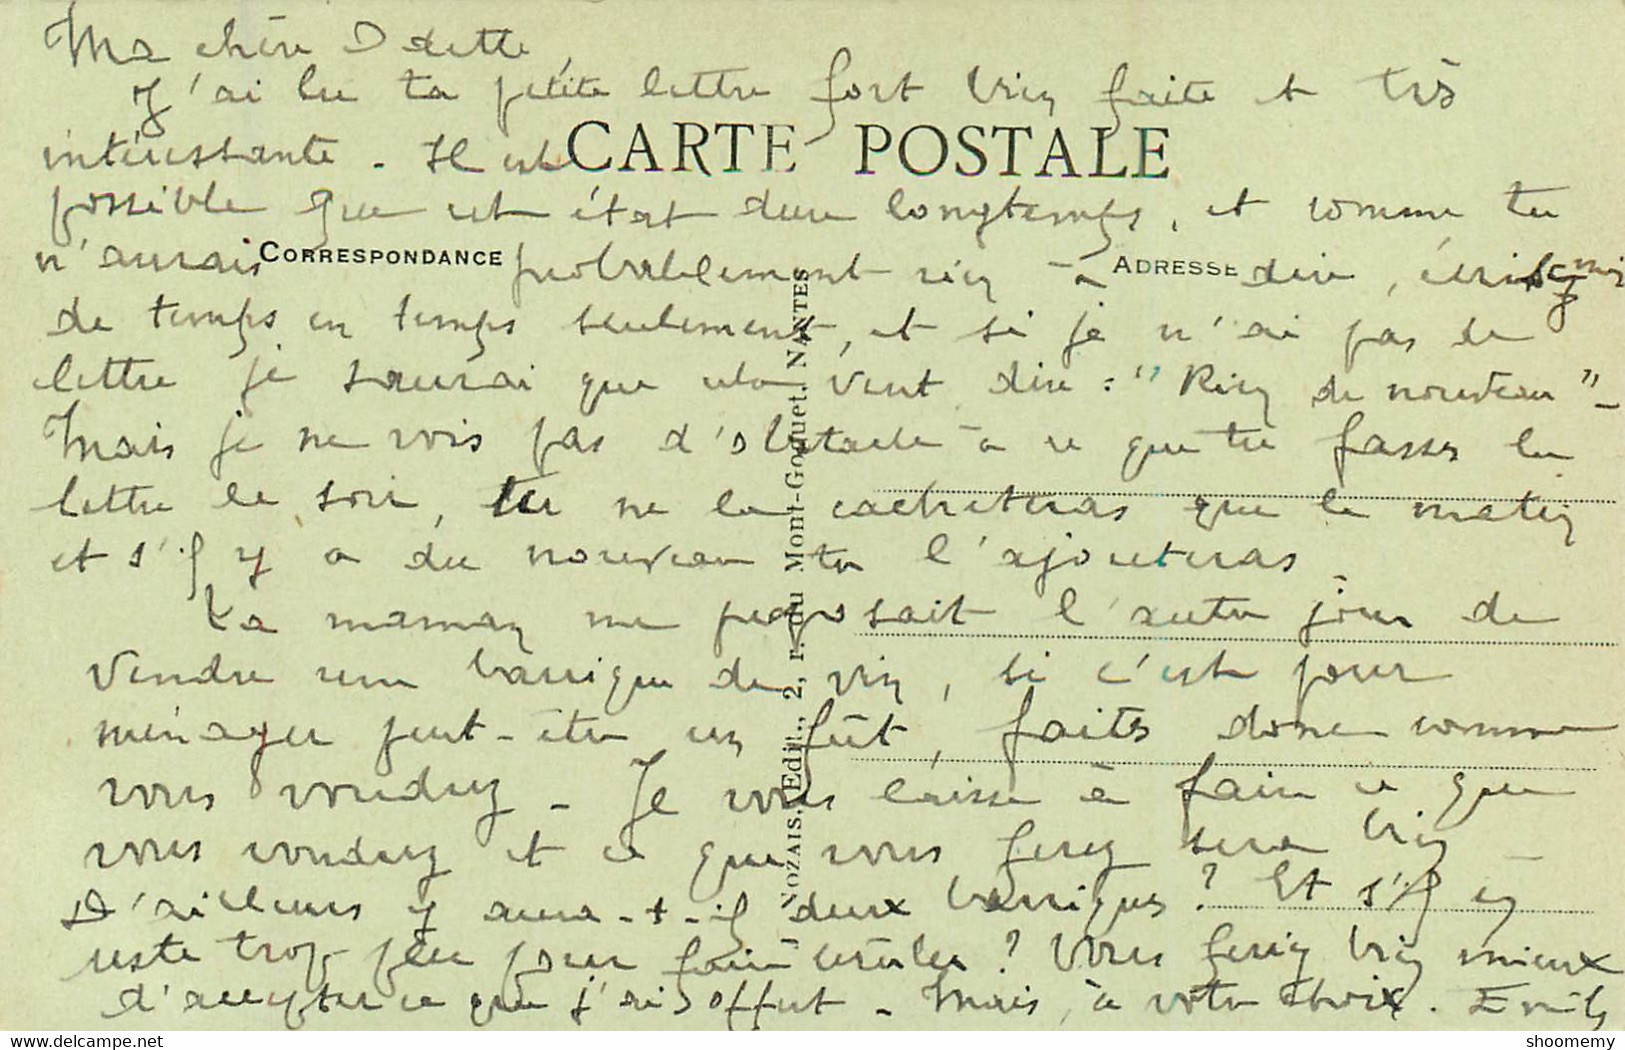 Ma chère Odette,
J'ai lu ta petite lettre fort bien faite et très
intéressante - Il est
CARTE POSTALE
possible que cet état dure longtemps, et comme tu
n'auras probablement rien à dire, écris moi
CORRESPONDANCE
ADRESSE
de temps en temps seulement, et si je n'ai pas de
lettre je saurai que cela veut dire : "Rien de nouveau" -
Mais je ne vois pas d'obstacle à ce que tu fasses la
lettre le soir, tu ne la cachèteras que le matin
et s'il y a du nouveau tu l'ajouteras.
Ta maman me proposait l'autre jour de
vendre une barrique de vin, si c'est pour
ménager peut-être un fût, faites donc comme
vous voudrez - Je vous laisse à faire ce que
vous voudrez et ce que vous ferez sera bien -
D'ailleurs y aura-t-il deux barriques ? Et s'il en
reste trop peu pour faire brûler ? Vous feriez bien mieux
d'accepter ce que j'ai offert - Mais, à votre choix. Emile
NOZAIS, Edit., 2, r. du Mont-Goguet, NANTES
shoomemy